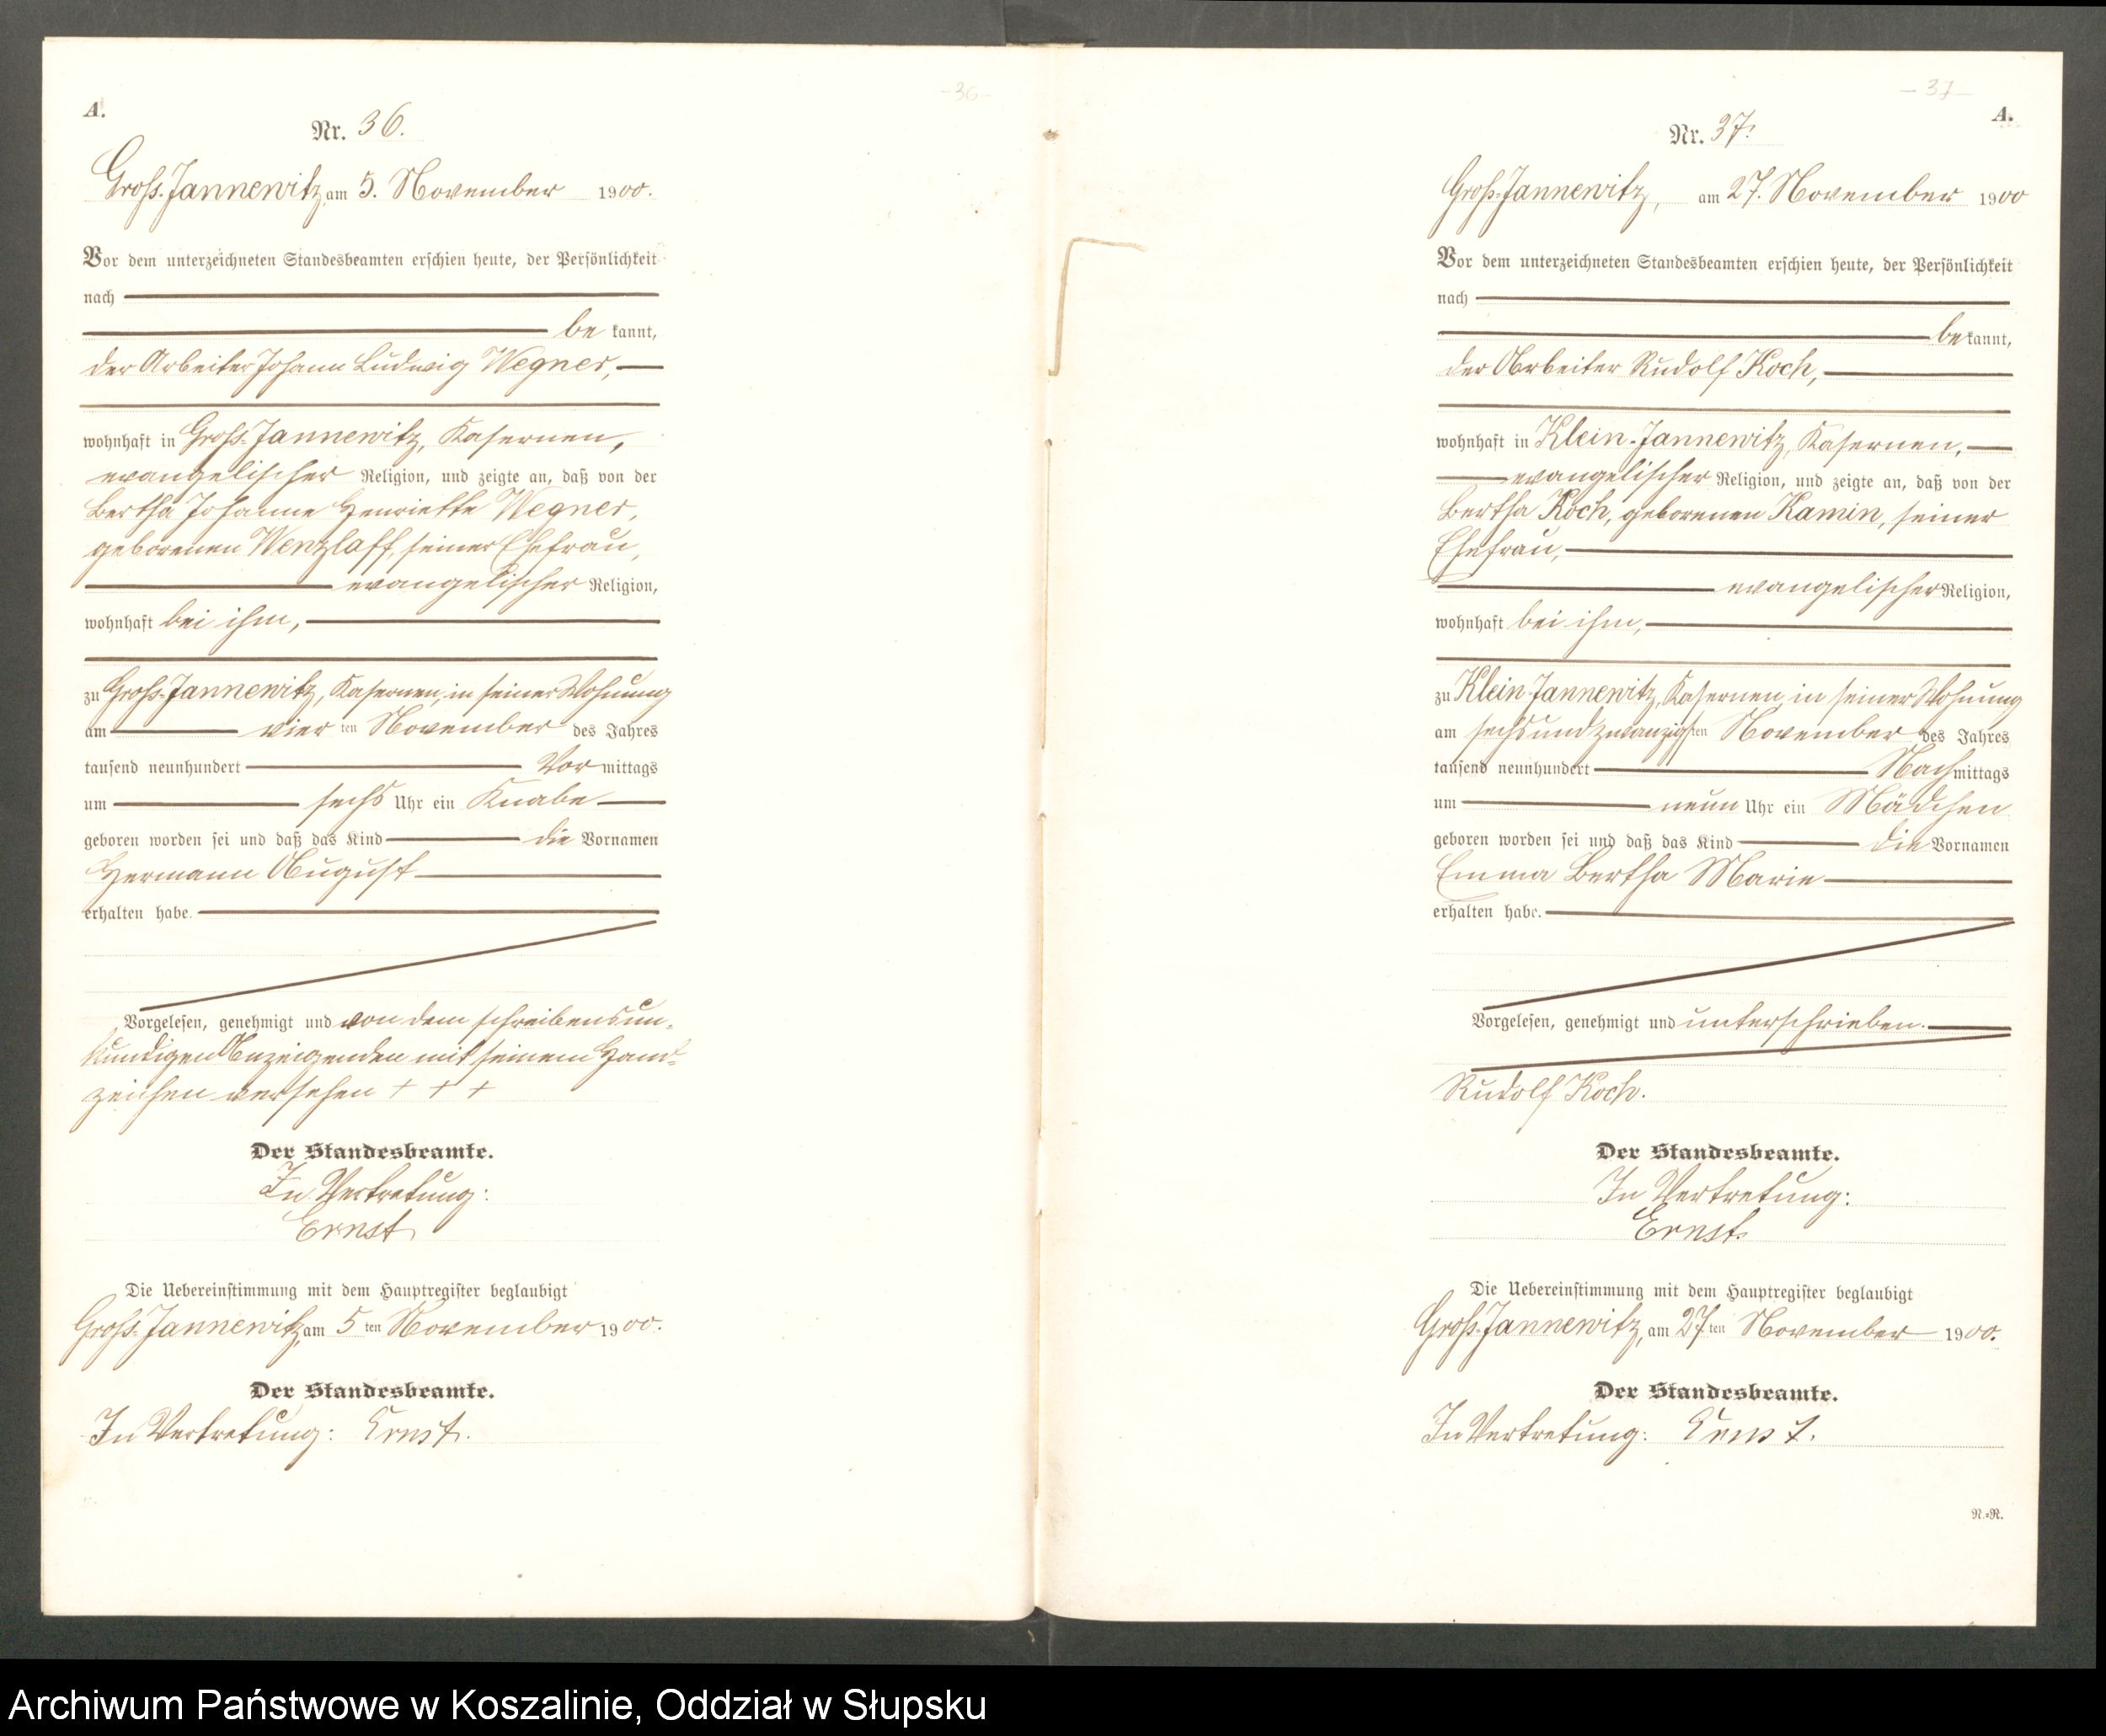 -36-
A.
Nr. 36.
Groß-Jannewitz, am 5. November 1900.
Vor dem unterzeichneten Standesbeamten erschien heute, der Persönlichkeit
nach
be kannt,
der Arbeiter Johann Ludwig Wegner,
wohnhaft in Groß-Jannewitz, Kasernen,
evangelischer Religion, und zeigte an, daß von der
Bertha Johanne Henriette Wegner,
geborenen Wenzlaff, seiner Ehefrau,
evangelischer Religion,
wohnhaft bei ihm,
zu Groß-Jannewitz, Kasernen, in seiner Wohnung
am vier ten November des Jahres
tausend neunhundert Vor mittags
um sechs Uhr ein Knabe
geboren worden sei und daß das Kind die Vornamen
Hermann August
erhalten habe.
Vorgelesen, genehmigt und von dem schreibensun-
kundigen Anzeigenden mit seinem Hand-
zeichen versehen + + +
Der Standesbeamte.
In Vertretung:
Ernst
Die Uebereinstimmung mit dem Hauptregister beglaubigt
Groß-Jannewitz, am 5 ten November 1900.
Der Standesbeamte.
In Vertretung: Ernst.
-37-
A.
Nr. 37.
Groß-Jannewitz, am 27. November 1900
Vor dem unterzeichneten Standesbeamten erschien heute, der Persönlichkeit
nach
be kannt,
der Arbeiter Rudolf Koch,
wohnhaft in Klein-Jannewitz, Kasernen,
evangelischer Religion, und zeigte an, daß von der
Bertha Koch, geborenen Kamin, seiner
Ehefrau,
evangelischer Religion,
wohnhaft bei ihm,
zu Klein-Jannewitz, Kasernen, in seiner Wohnung
am sechsundzwanzigsten November des Jahres
tausend neunhundert Nach mittags
um neun Uhr ein Mädchen
geboren worden sei und daß das Kind die Vornamen
Emma Bertha Marie
erhalten habe.
Vorgelesen, genehmigt und unterschrieben.
Rudolf Koch.
Der Standesbeamte.
In Vertretung:
Ernst.
Die Uebereinstimmung mit dem Hauptregister beglaubigt
Groß-Jannewitz, am 27 ten November 1900.
Der Standesbeamte.
In Vertretung: Ernst.
N.=R.
Archiwum Państwowe w Koszalinie, Oddział w Słupsku